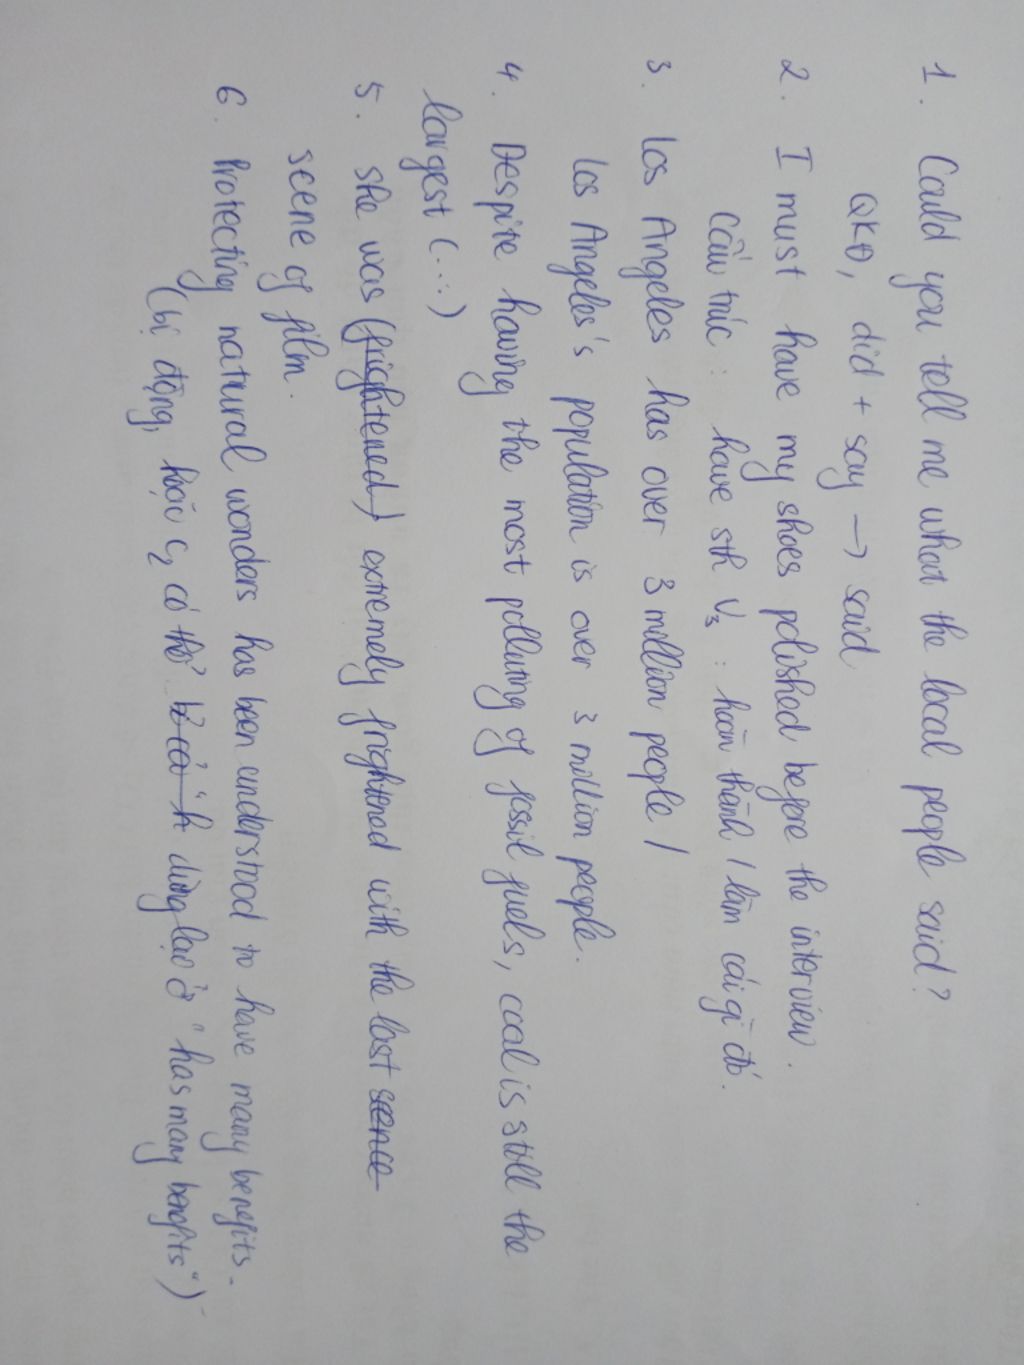 1. Could you tell me what the local people said?
QKĐ, did + say → said
2. I must have my shoes polished before the interview.
Cấu trúc : have sth V3 : hoàn thành / làm cái gì đó.
3. Los Angeles has over 3 million people /
Los Angeles's population is over 3 million people.
4. Despite having the most polluting of fossil fuels, coal is still the
largest (...)
5. she was (frightened) extremely frightened with the last scence
scene of film.
6. Protecting natural wonders has been understood to have many benefits.
(bị động, hoặc c2 có thể dừng lại ở "has many benefits")